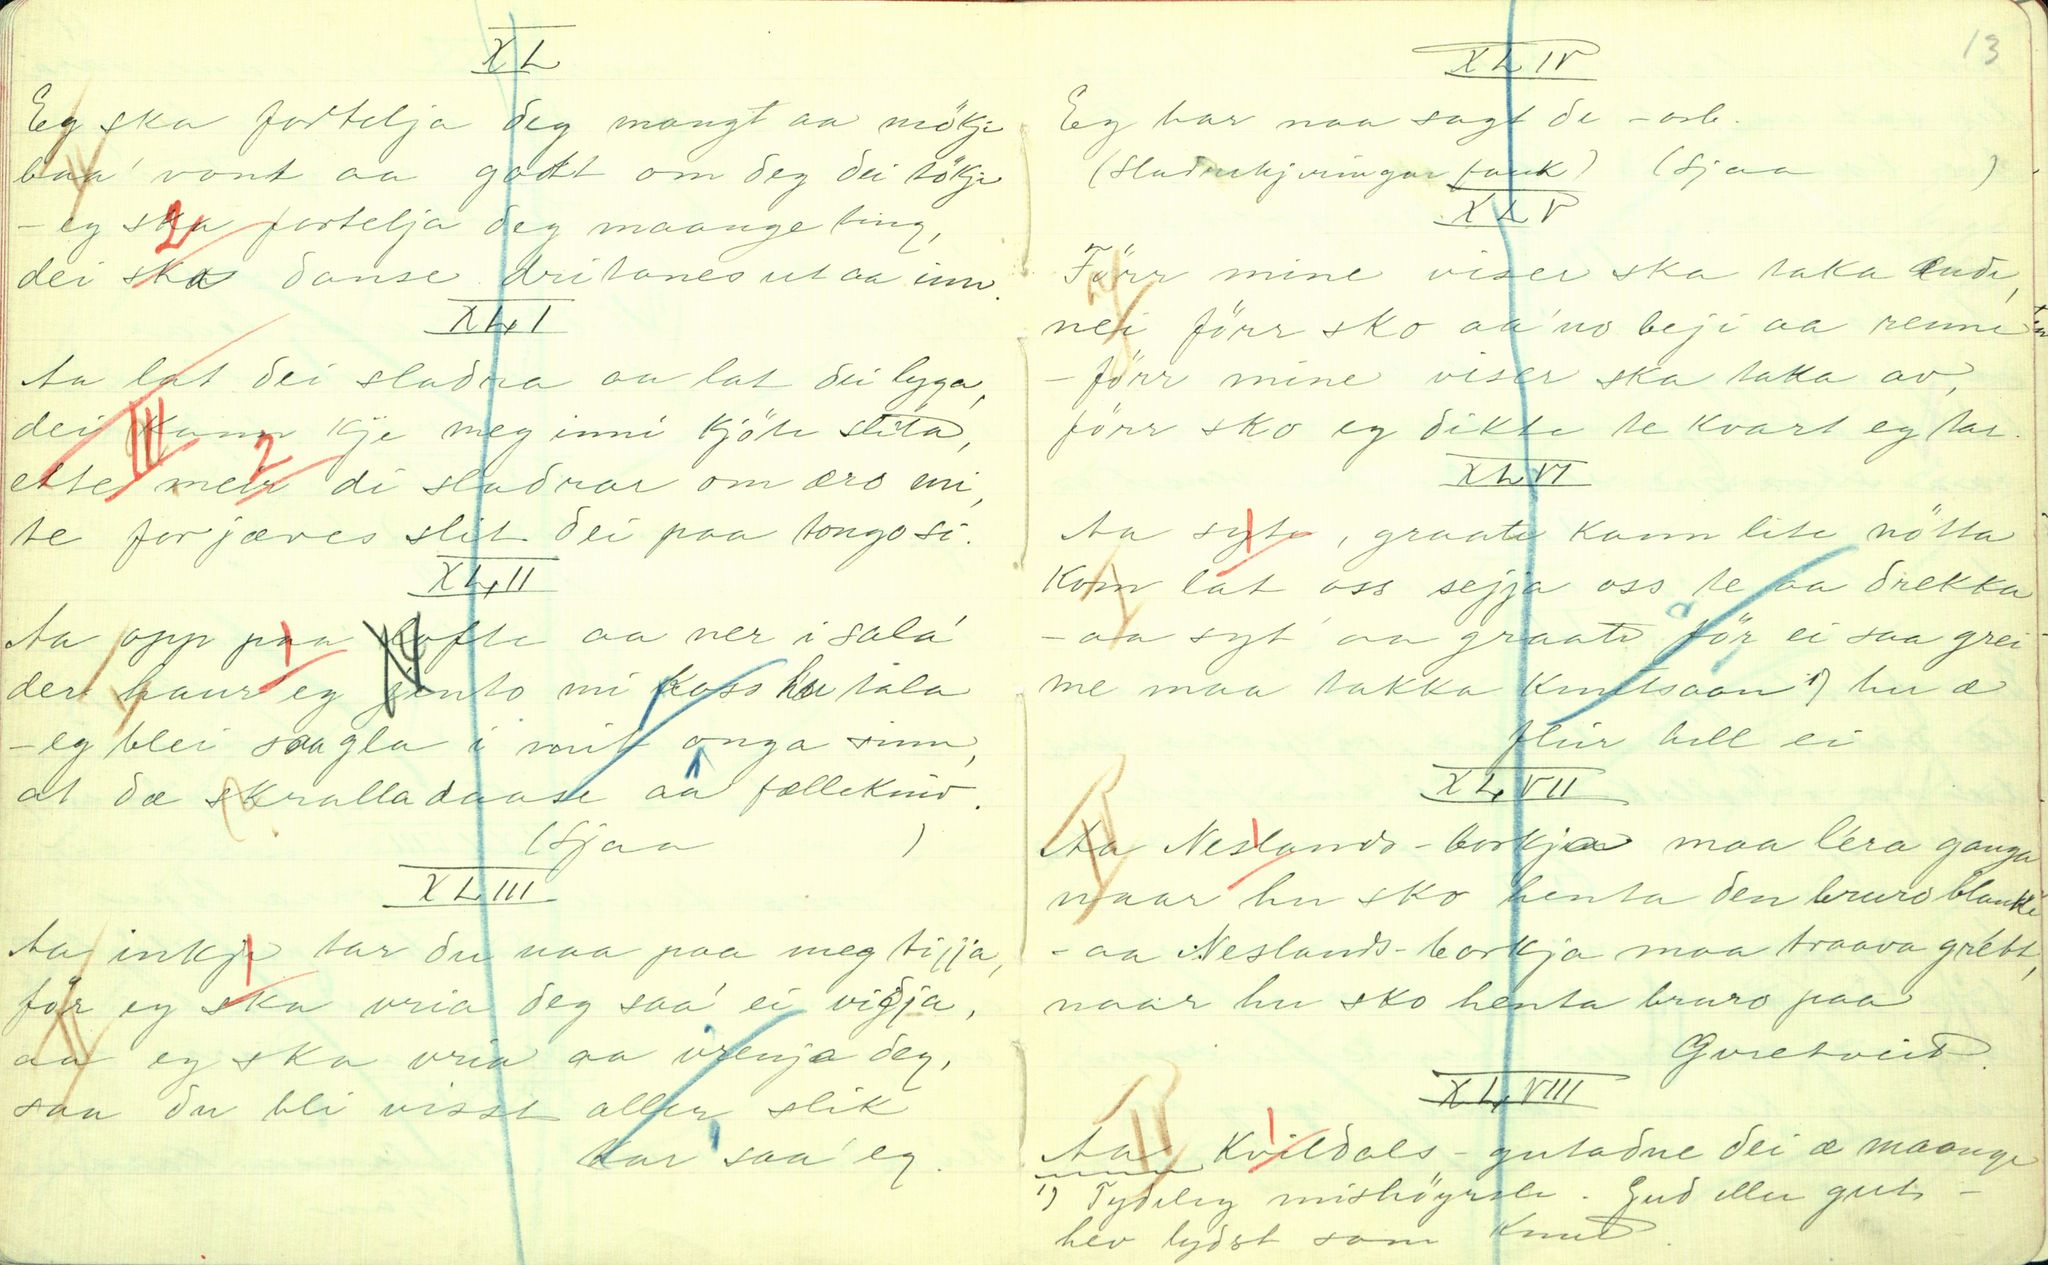 XL
Eg ska fortelja deg mangt aa mökje
baa' vont aa godt om deg dei tökje
- eg ska fortelja deg maange ting,
dei ska danse dritanes ut aa inn.
XLI
Aa lat dei sladra aa lat dei lyga,
dei kann kje meg inni kjöte slita,
ette meir di sladrar om æro mi,
te forjæves slit dei paa tongo si.
XLII
Aa opp paa lofte aa ner i sala'
der haur eg jento mi koss hu tala
- eg blei saagla i mit onga sinn,
at dæ skralladaase aa fællekinn.
(Sjaa )
XLIII
Aa inkje tar du naa paa meg tijja,
för eg ska vria deg saa' ei vidja,
aa eg ska vria aa vrenja deg,
saa du bli visst aller slik
kar saa' eg.
13
XLIV
Eg har naa sagt de - osb.
(Sladrekjeringar fank) (Sjaa )
XLV
Förr mine viser ska taka ende,
nei förr sko aa' no beji aa renne
- förr mine viser ska taka av,
förr sko eg dikte te kvart eg tar.
XLVI
Aa syte, graate kann lite nötta
Kom lat oss sejja oss te aa drekka
- aa syt' aa graate för ei saa grei
me maa takka Knutsaan 1) hu æ
fleir hell ei
XLVII
Aa Neslands-borkja maa lera ganga
naar hu sko henta den bruro blanke
- aa Neslands-borkja maa traava grett,
naar hu sko henta bruro paa
Gvretveit.
XLVIII
Aa Kvildals-gutadne dei æ maange
1) Tydeleg mishöyrsle. Gud eller guts -
hev lydst som Knud.